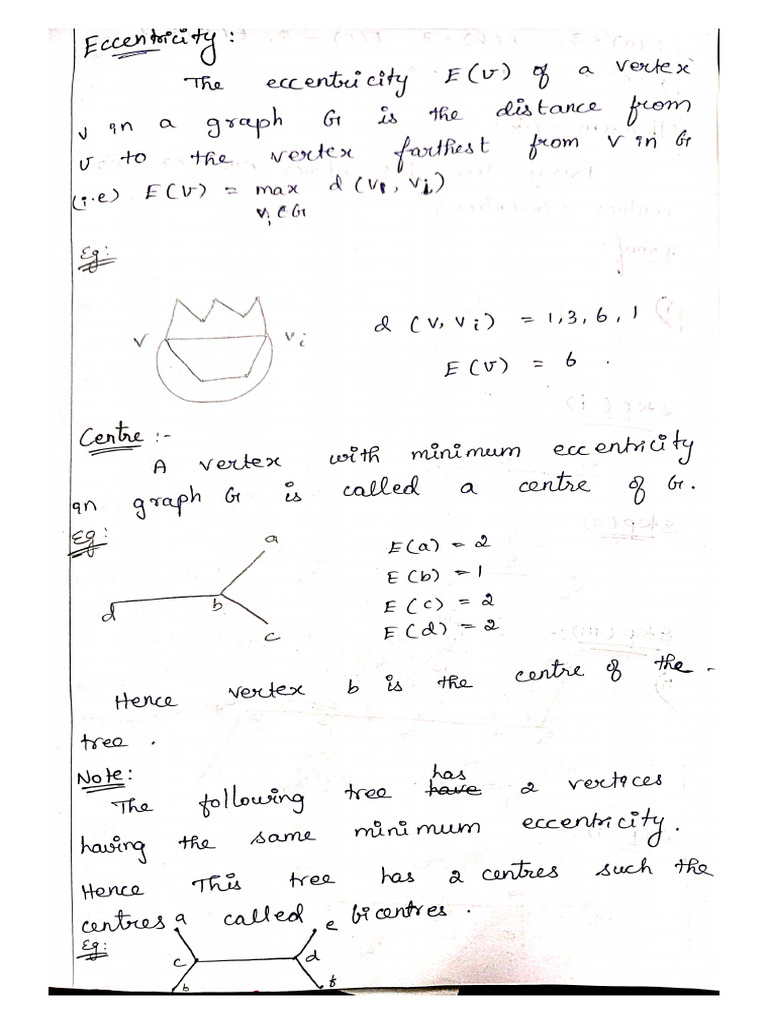 Eccentricity:
The eccentricity E(v) of a vertex
v in a graph G is the distance from
v to the vertex farthest from v in G
(i.e) E(v) = max d(v, vi)
vi∈G
Eg:
v vi
d (v, vi) = 1, 3, 6, 1
E(v) = 6.
Centre :-
A vertex with minimum eccentricity
in graph G is called a centre of G.
Eg:
a
b
c
d
E(a) = 2
E(b) = 1
E(c) = 2
E(d) = 2
Hence vertex b is the centre of the
tree.
Note:
has
The following tree have 2 vertices
having the same minimum eccentricity.
Hence This tree has 2 centres such the
centres called bicentres.
Eg:
a e
c d
b f